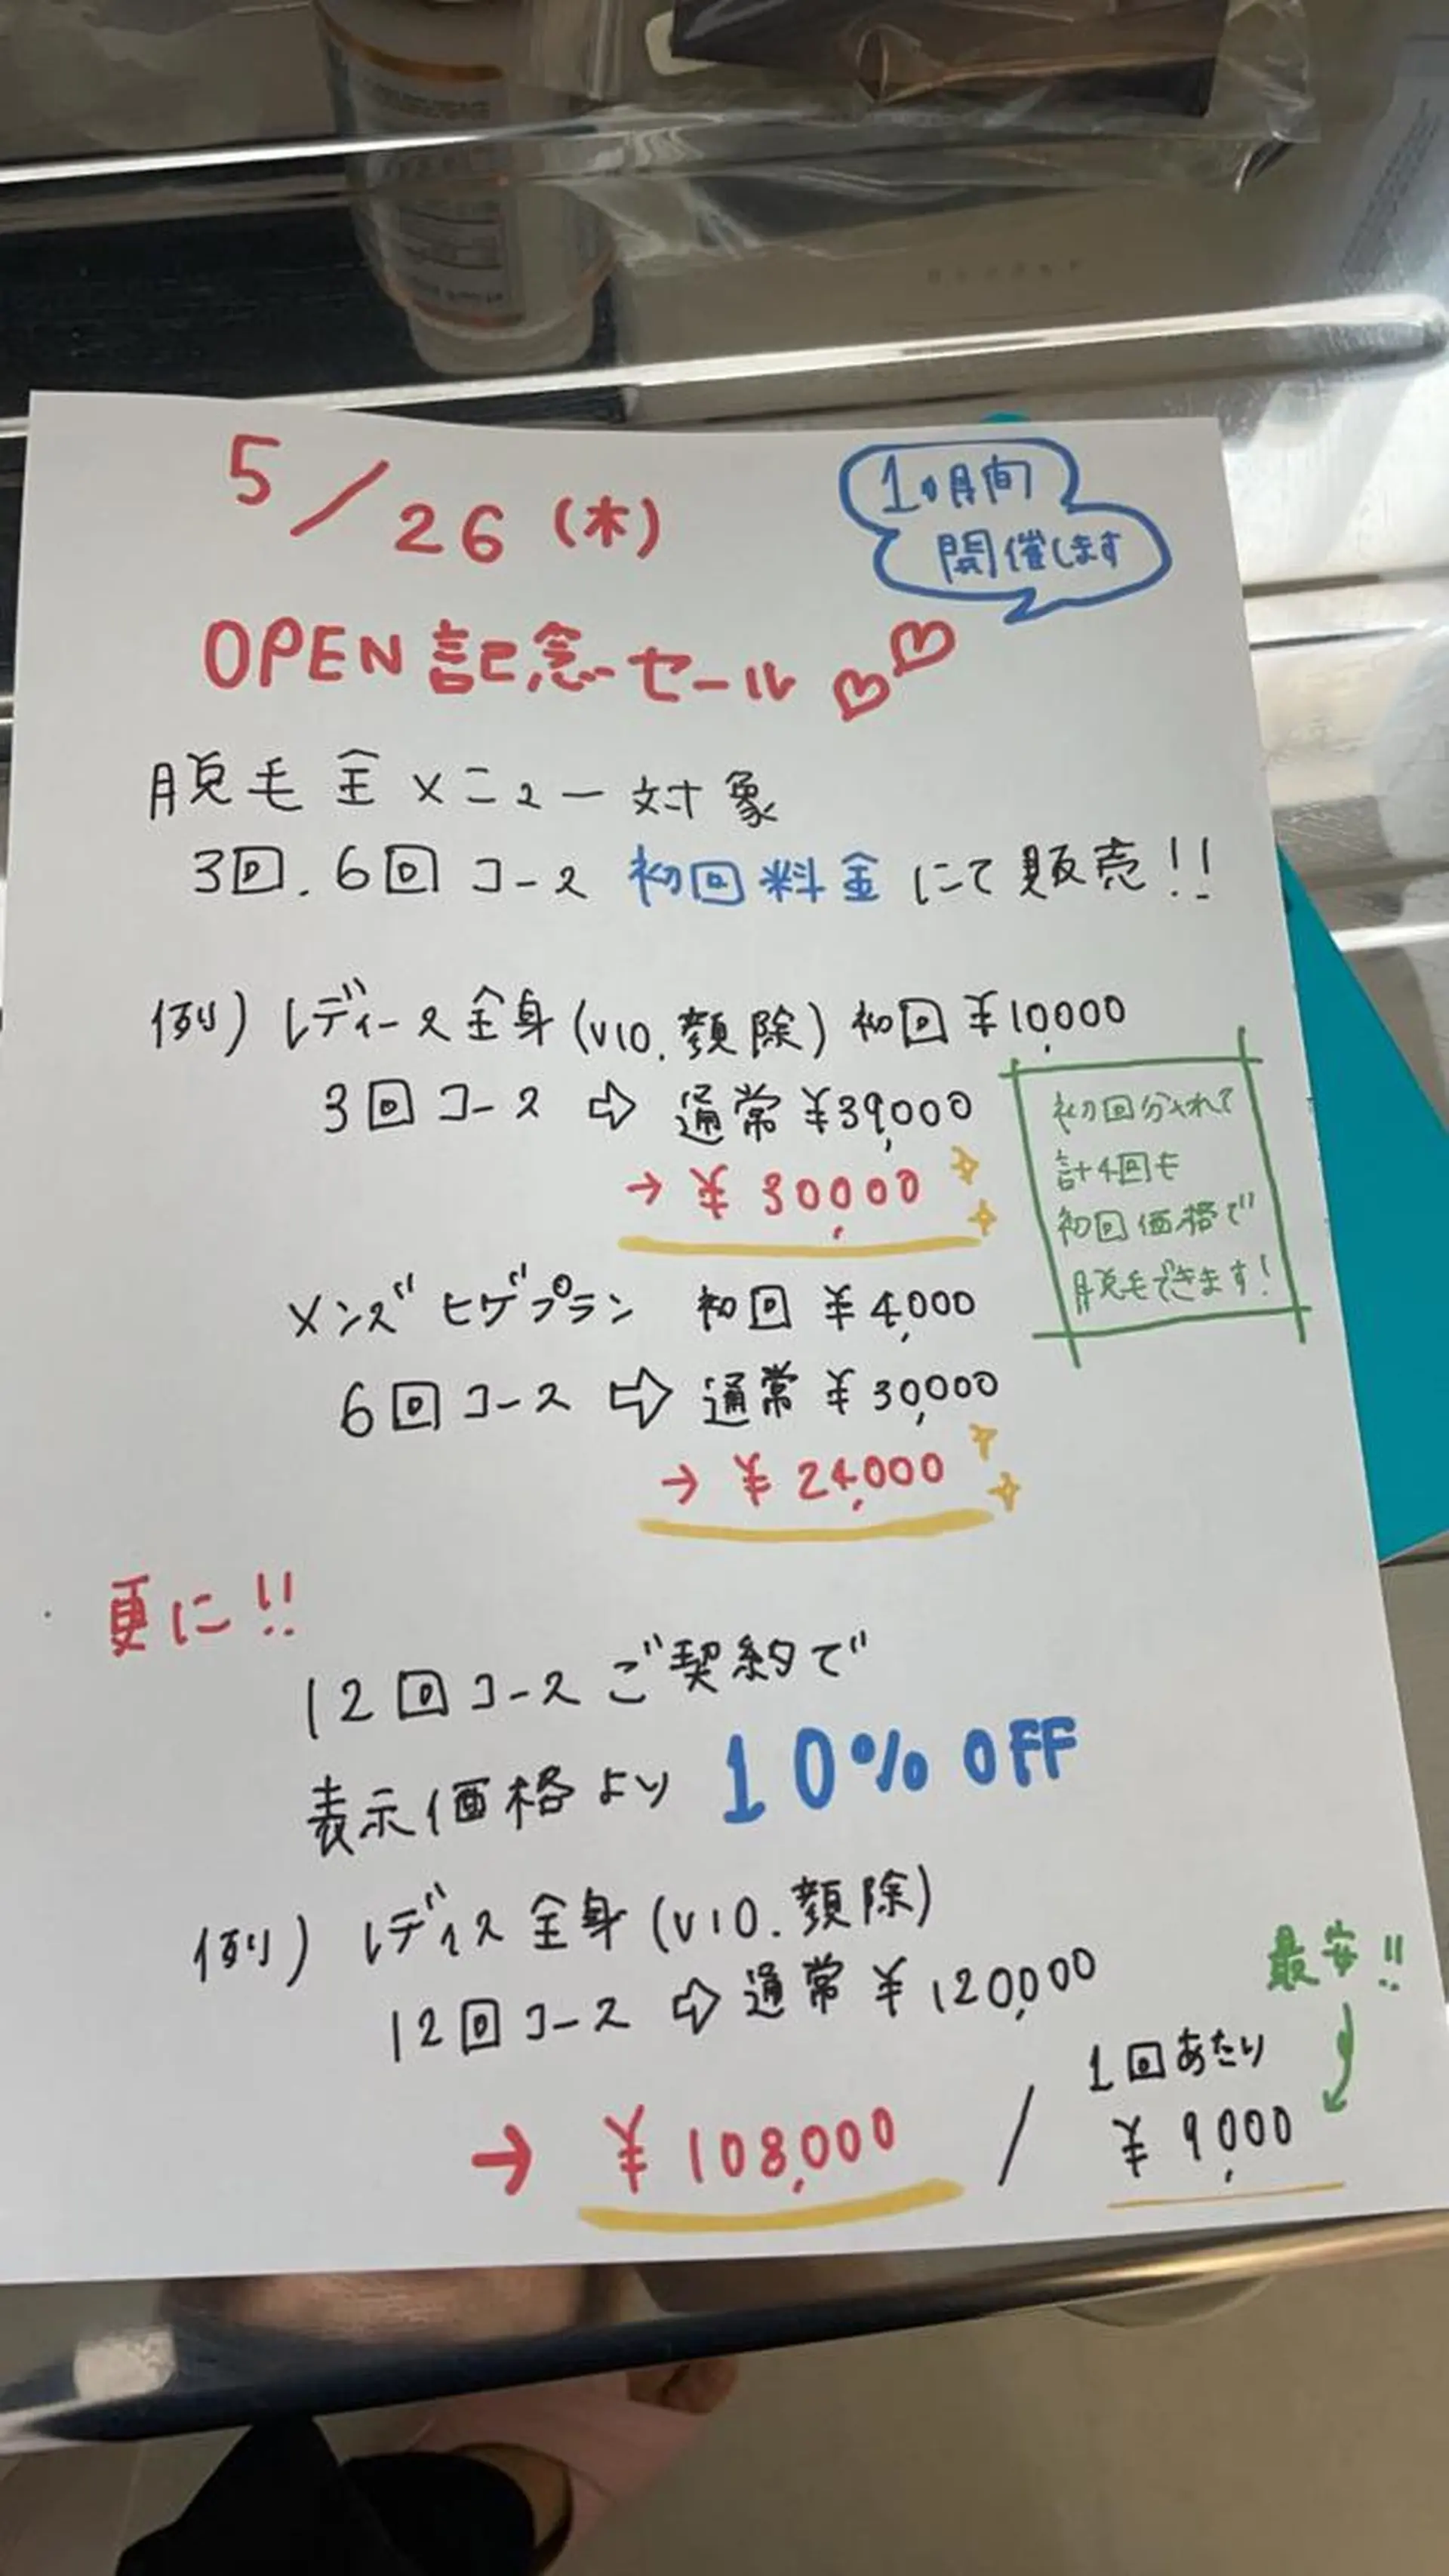 5/26(木)
1ヶ月間
開催します
OPEN記念セール
脱毛全メニュー対象
3回.6回コース 初回料金にて販売!!
例) レディース全身(VIO.顔除) 初回 ¥10,000
3回コース ⇨ 通常 ¥39,000
→ ¥30,000
初回分入れて
計4回も
初回価格で
脱毛できます!
メンズ ヒゲプラン 初回 ¥4,000
6回コース ⇨ 通常 ¥30,000
→ ¥24,000
更に!!
12回コースご契約で
表示価格より 10% OFF
例) レディス全身(VIO.顔除)
12回コース ⇨ 通常 ¥120,000
最安!!
→ ¥108,000 / 1回あたり
¥9,000